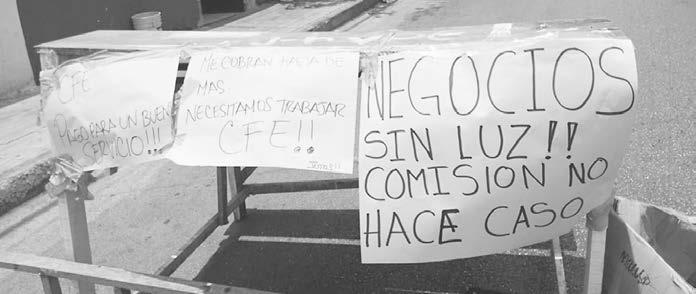 CFE
PAGO PARA UN BUEN
SERVICIO!!!
ME COBRAN HASTA DE
MAS.
NECESITAMOS TRABAJAR
CFE!!
NEGOCIOS
SIN LUZ!!
COMISION NO
HACE CASO